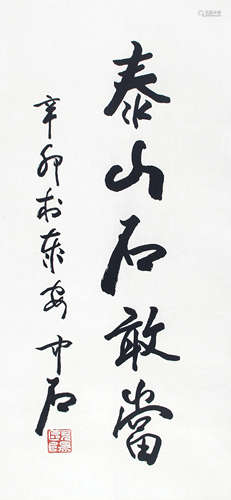 泰山石敢當
辛卯於泰安中石